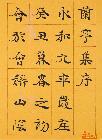 蘭亭集序
永和九年歲在
癸丑暮春之初
會於會稽山陰